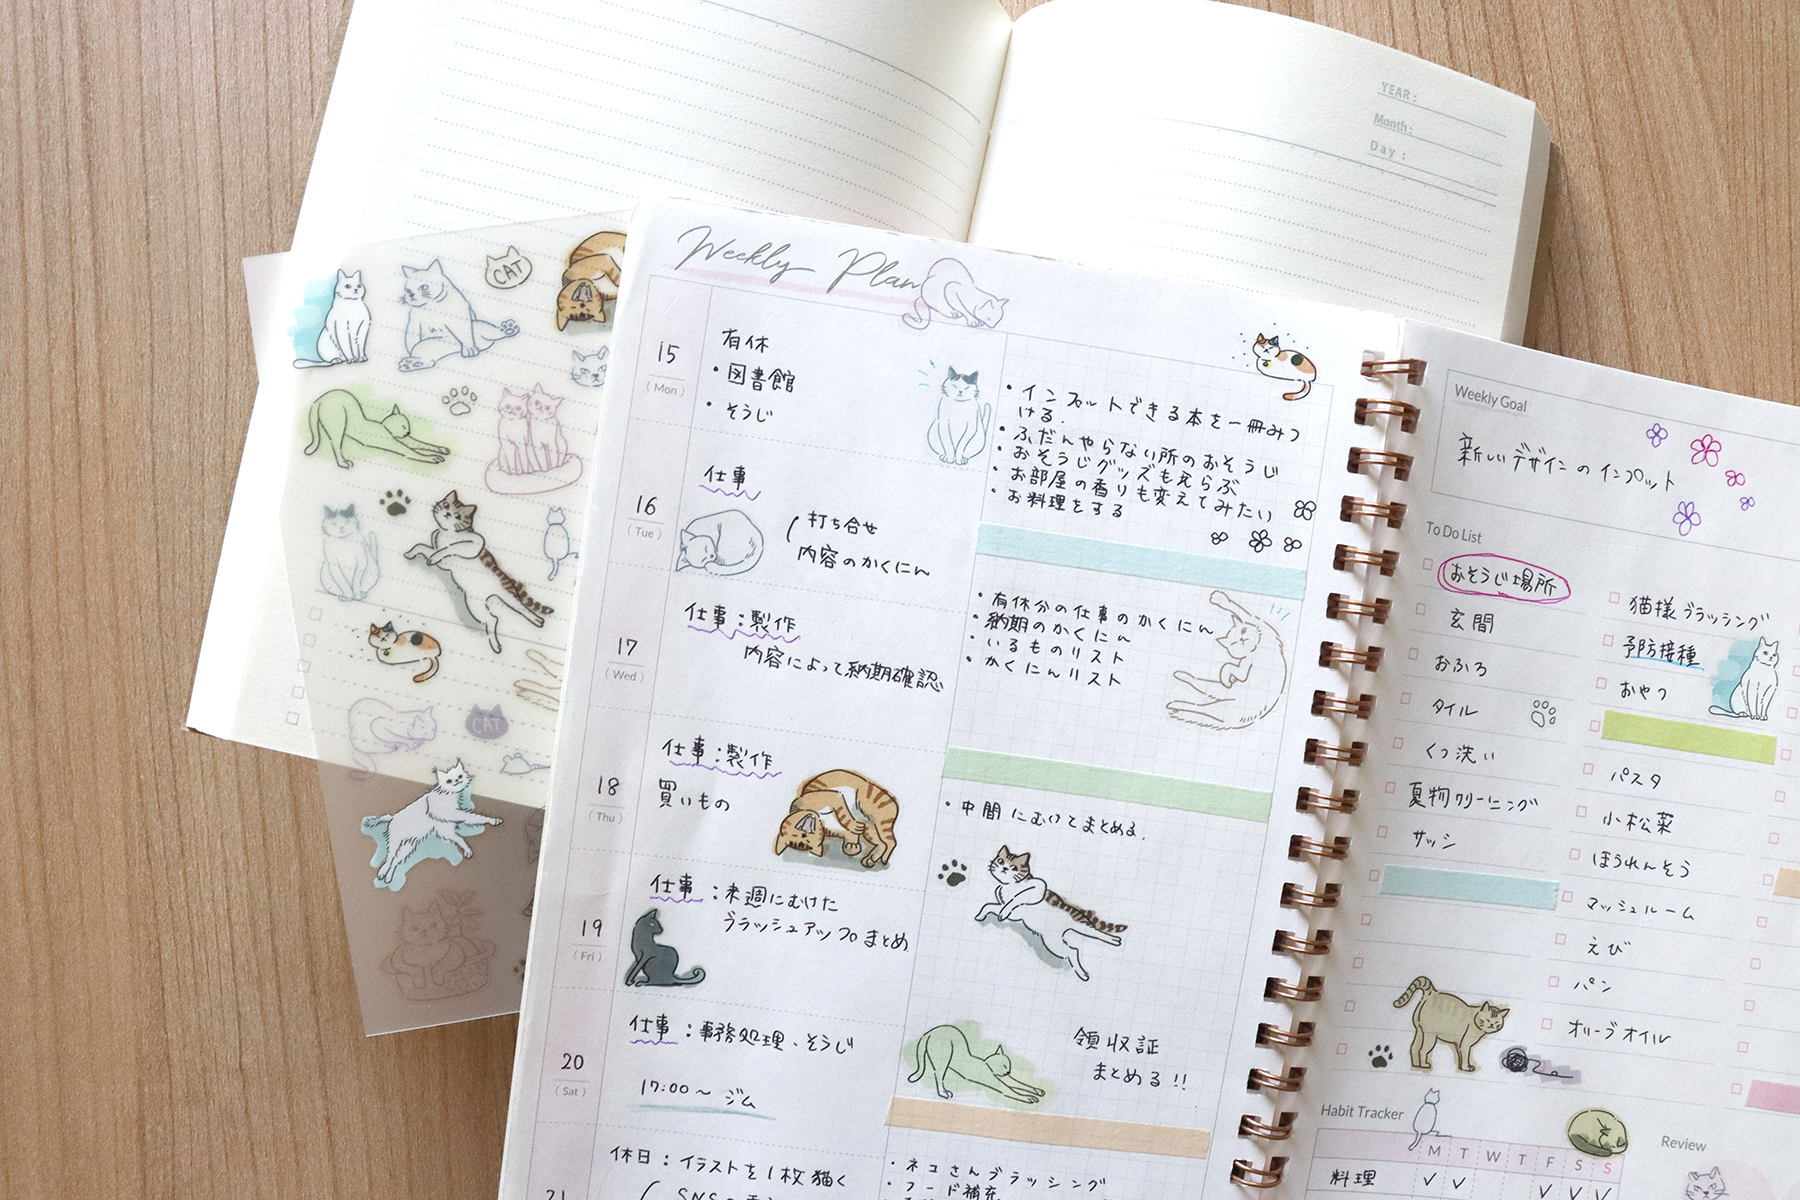 YEAR :
Month :
Day :
CAT
CAT
Weekly Plan
15
(Mon)
有休
・図書館
・そうじ
・インプットできる本を一冊みつ
ける.
・ふだんやらない所のおそうじ
・おそうじグッズもえらぶ
・お部屋の香りも変えてみたい
・お料理をする
16
(Tue)
仕事
打ち合せ
内容のかくにん
・有休分の仕事のかくにん
・納期のかくにん
・いるものリスト
・かくにんリスト
17
(Wed)
仕事:製作
内容によって納期確認
18
(Thu)
仕事:製作
買いもの
・中間にむけてまとめる.
19
(Fri)
仕事:来週にむけた
ブラッシュアップまとめ
20
(Sat)
仕事:事務処理、そうじ
17:00〜 ジム
領収証
まとめる!!
21
休日:イラストを1枚描く
・ネコさんブラッシング
・フード補充
Weekly Goal
新しいデザインのインプット
To Do List
おそうじ場所
玄関
おふろ
タイル
くつ洗い
夏物クリーニング
サッシ
猫様ブラッシング
予防接種
おやつ
パスタ
小松菜
ほうれんそう
マッシュルーム
えび
パン
オリーブオイル
Habit Tracker
M T W T F S S
料理
Review